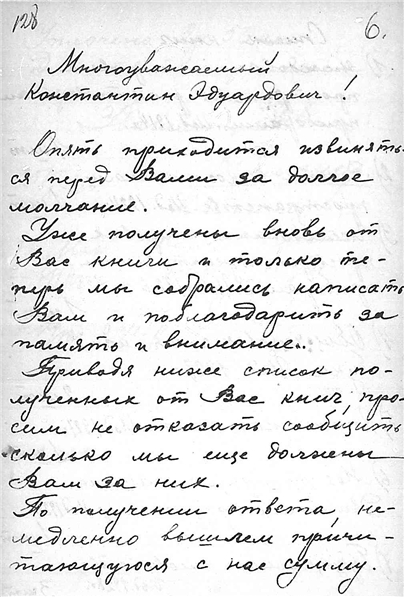 128
6.
Многоуважаемый
Константин Эдуардович!
Опять приходится извинять-
ся перед Вами за долгое
молчание.
Уже получены вновь от
Вас книги и только те-
перь мы собрались написать
Вам и поблагодарить за
память и внимание.
Приводя ниже список по-
лученных от Вас книг, про-
сим не отказать сообщить
сколько мы еще должены
Вам за них.
По получении ответа, не-
медленно вышлем причи-
тающуюся с нас сумму.